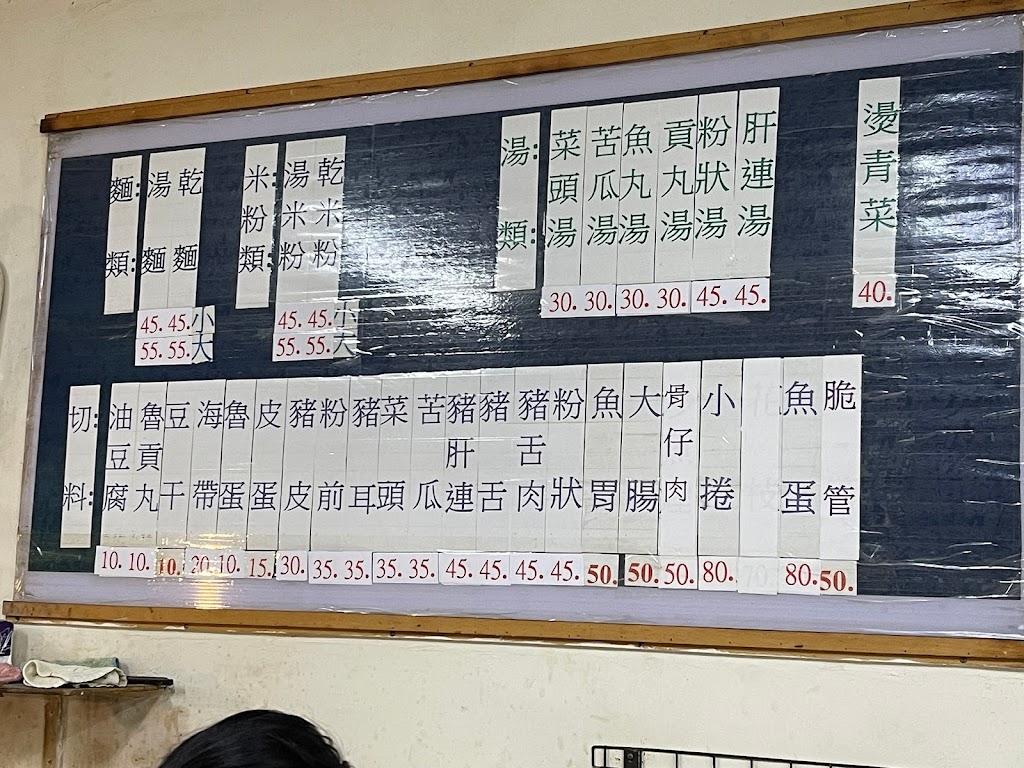 麵類:
湯麵
乾麵
45. 45. 小
55. 55. 大
米粉類:
湯米粉
乾米粉
45. 45. 小
55. 55. 大
湯類:
菜頭湯 30.
苦瓜湯 30.
魚丸湯 30.
貢丸湯 30.
粉狀湯 45.
肝連湯 45.
燙青菜 40.
切料:
油豆腐 10.
魯貢丸 10.
豆干 10.
海帶 20.
魯蛋 10.
皮蛋 15.
豬皮 30.
粉前 35.
豬耳 35.
菜頭 35.
苦瓜 35.
豬肝連 45.
豬舌 45.
豬舌肉 45.
粉狀 45.
魚胃 50.
大腸 50.
骨仔肉 50.
小捲 80.
花枝 70.
魚蛋 80.
脆管 50.